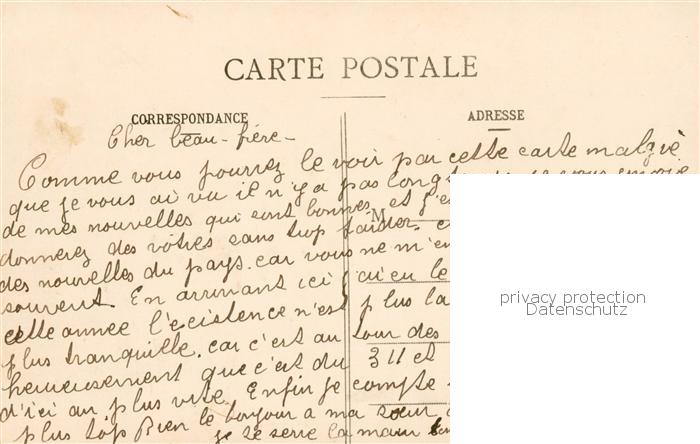 CARTE POSTALE
CORRESPONDANCE
ADRESSE
Cher beau-frère-
Comme vous pourrez le voir par cette carte malgré
que je vous ai vu il n'y a pas longt
de mes nouvelles qui sont bonnes et j'es
M
donnerez des vôtres sans trop tarder.
des nouvelles du pays. car vous ne m'en
souvent. En arrivant ici j'ai eu le
cette année l'écistence n'est plus la
plus tranquille. car c'est au tour des
heureusement que c'est du 311 et
d'ici au plus vite. Enfin je compte
plus tôp Bien le bonjour à ma sœur
je te serre la main
privacy protection
Datenschutz